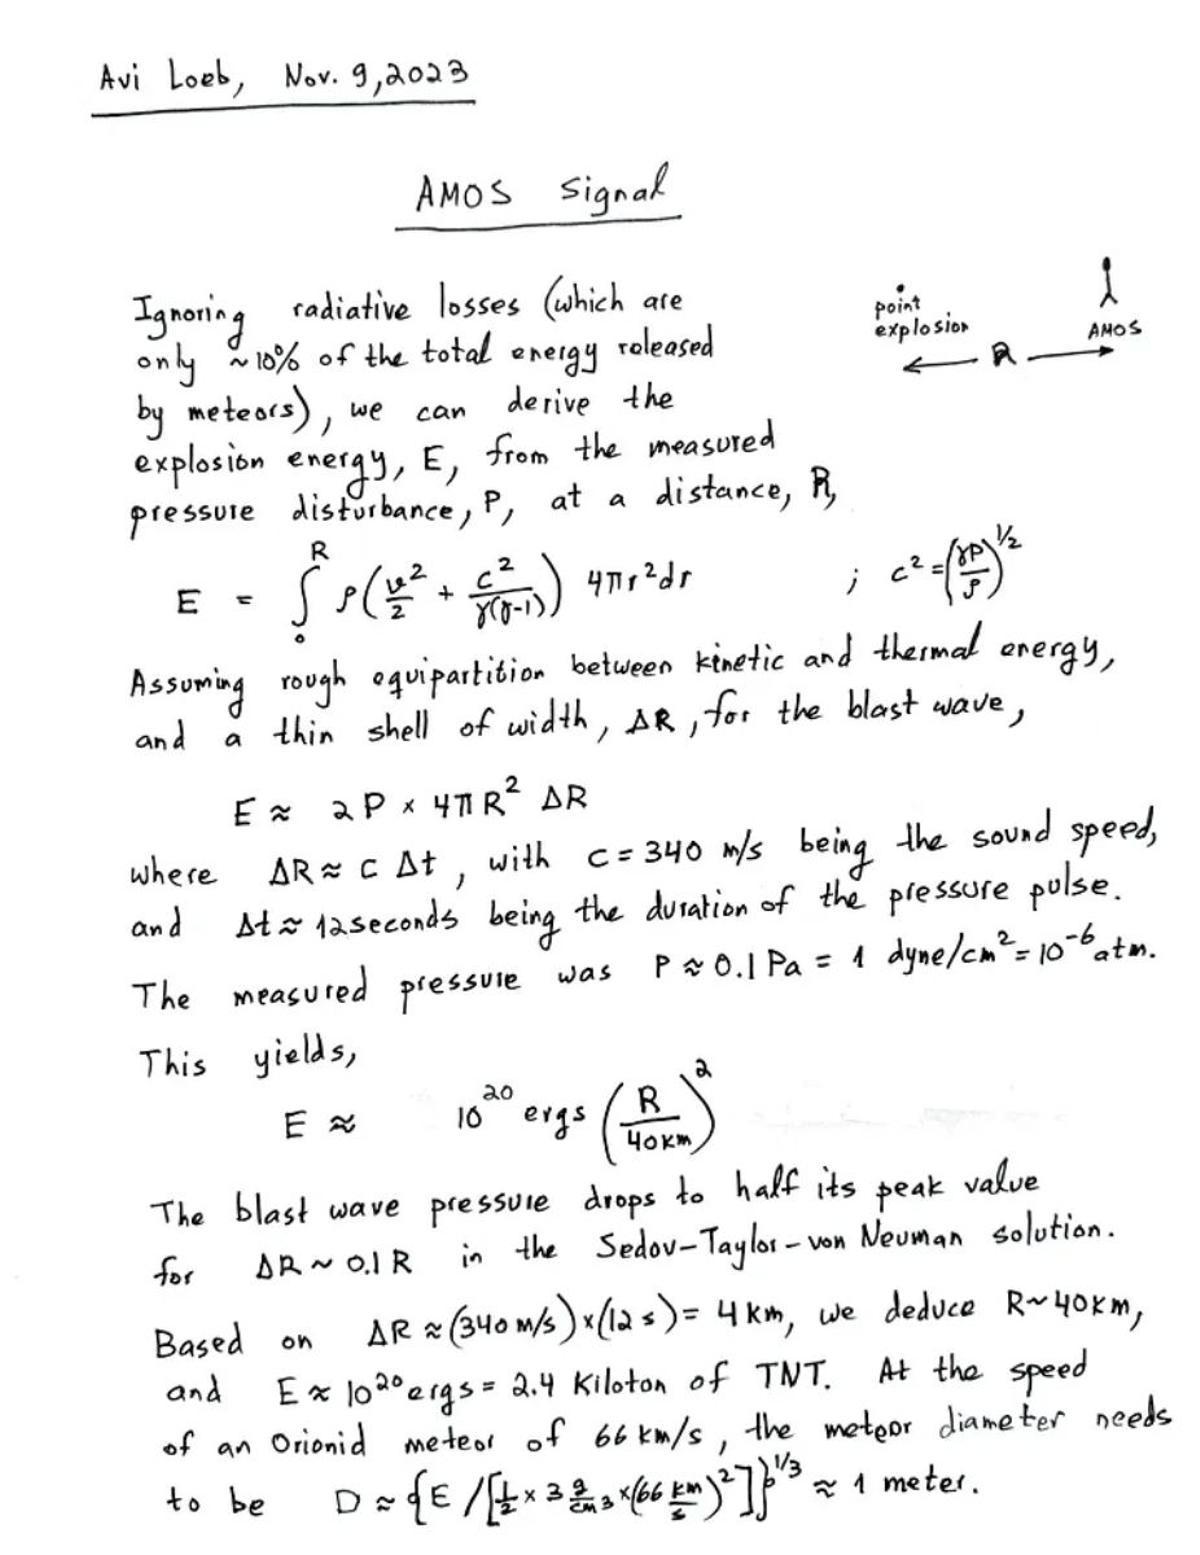 Avi Loeb, Nov. 9, 2023
AMOS Signal
Ignoring radiative losses (which are
only ~10% of the total energy released
by meteors), we can derive the
explosion energy, E, from the measured
pressure disturbance, P, at a distance, R,
point
explosion
AMOS
R
E = ∫₀ᴿ ρ(v²/2 + c²/γ(γ-1)) 4πr²dr ; c² = (γP/ρ)^1/2
Assuming rough equipartition between kinetic and thermal energy,
and a thin shell of width, ΔR, for the blast wave,
E ≈ 2P × 4πR² ΔR
where ΔR ≈ c Δt, with c = 340 m/s being the sound speed,
and Δt ≈ 12 seconds being the duration of the pressure pulse.
The measured pressure was P ≈ 0.1 Pa = 1 dyne/cm² = 10⁻⁶ atm.
This yields,
E ≈ 10²⁰ ergs (R/40km)²
The blast wave pressure drops to half its peak value
for ΔR ~ 0.1 R in the Sedov-Taylor-von Neuman solution.
Based on ΔR ≈ (340 m/s) × (12 s) = 4 km, we deduce R ~ 40 km,
and E ≈ 10²⁰ ergs = 2.4 Kiloton of TNT. At the speed
of an Orionid meteor of 66 km/s, the meteor diameter needs
to be D ≈ {E/[1/2 × 3 g/cm³ × (66 km/s)²]}^1/3 ≈ 1 meter.